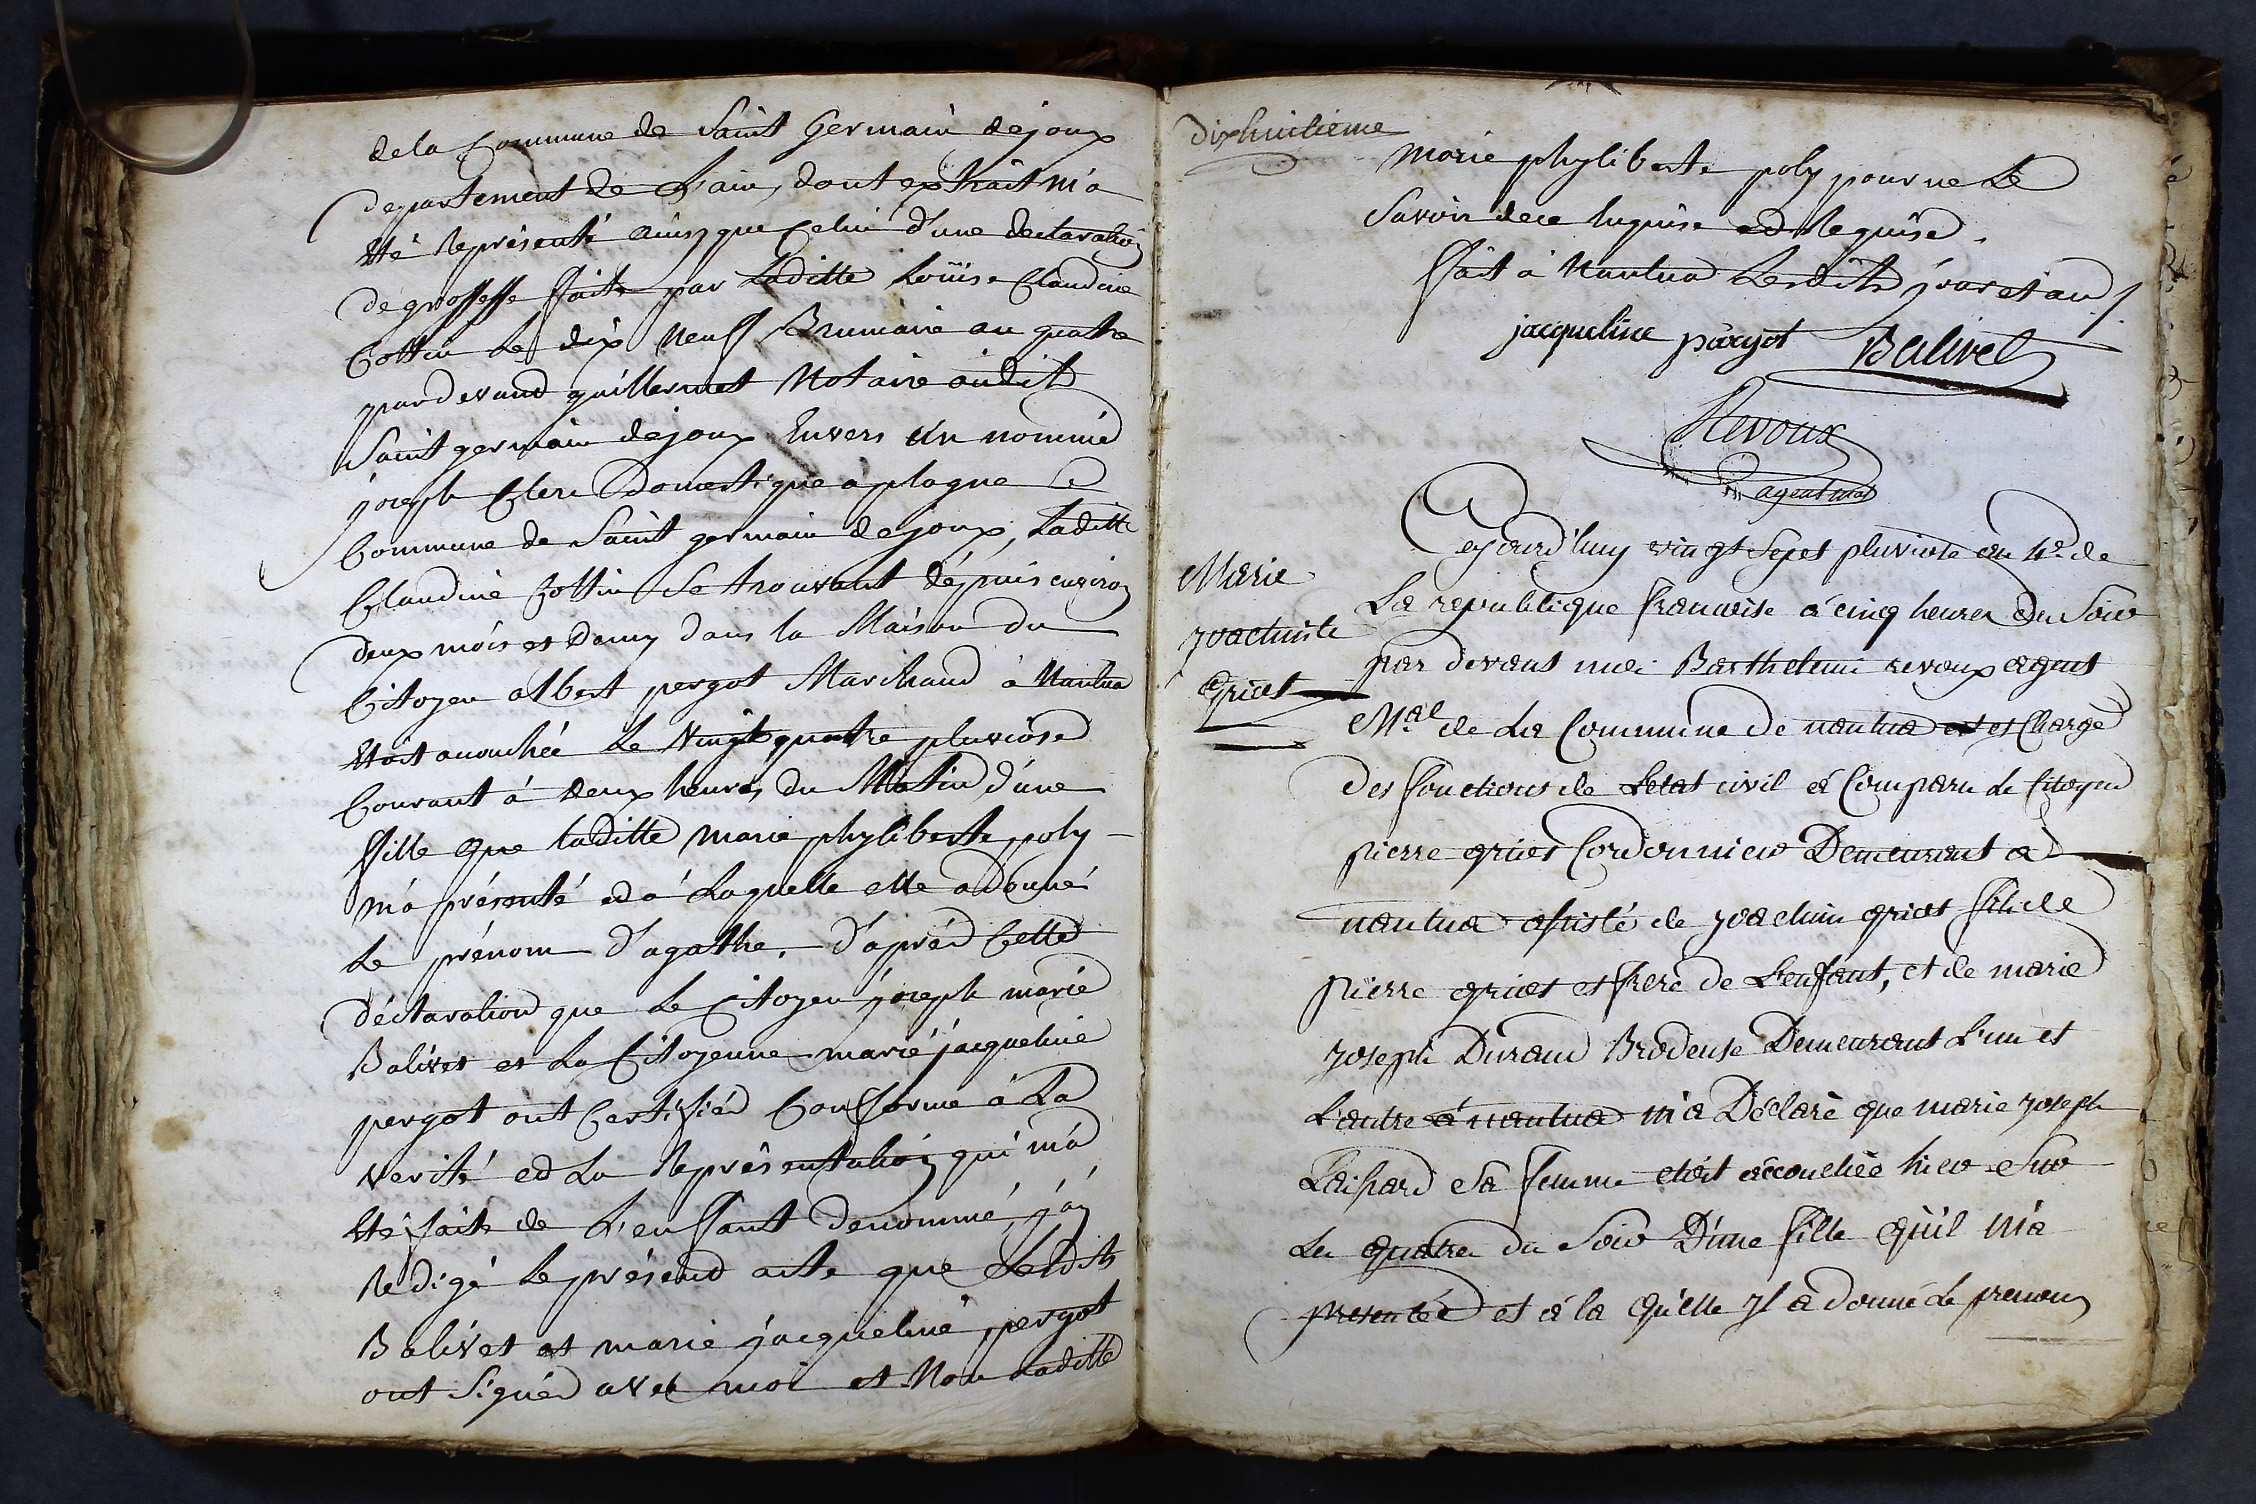 dela Commune de Saint Germain dejoux
departement de L'ain, dont extrait m'a
été Représenté ainsy que Celui d'une declaration
de grossesse ffaite par Laditte Loüise Claudine
Cottin le dix neuf Brumaire an quatre
pardevant guillermet Notaire audit
Saint germain dejoux Envers un nommé
joseph Clerc Domestique à plagne
Commune de Saint germain dejoux, Laditte
Claudine Cottin se trouvant dépuis environ
deux mois et Demy dans la Maison du
Citoyen albert pergot Marchand à Nantua
étoit accouchée le Vingt quatre pluviôse
Courant à deux heures du Matin, d'une
ffille que laditte marie phyliberte poly
m'a présenté et à Laquelle elle a donné
le prénom d'agathe. D'après Cette
déclaration que le Citoyen joseph marie
Balivet et La Citoyenne marie jacqueline
pergot ont Certifiée Conforme à La
verité et La Représentation qui m'a
été faite de L'enffant denommé, j'ay
Redigé le présent acte que Lesdits
Balivet et marie jacqueline pergot
ont Signéd avec moi et Non Laditte
dixhuitieme
marie phyliberte poly pour ne le
Savoir de ce Enquise et Requise.
ffait à Nantua Lesdits jour et an
jacqueline pargot Balivet
Revoux
agent mal
Marie
joachinite
griot
Cejourd'huy vingt Sept pluviose an 4e de
La republique francoise à cinq heures du Soir
par devant moi Barthelemi revoux agent
Mal de La Commune de nantua et Chargé
Des ffonctions de Letat civil à Comparu le Citoyen
pierre griot Cordonnier Demeurant a
nantua assisté de joachim griot fils de
pierre griot et frere de L'enfant, et de marie
joseph Durand Brodeuse Demeurant L'un et
L'autre à nantua m'a Déclaré que marie joseph
sa femme etoit accouchée hier Sur
Les quatre du Soir D'une fille qu'il m'a
presentée et à la qu'elle jl a donné le prenom